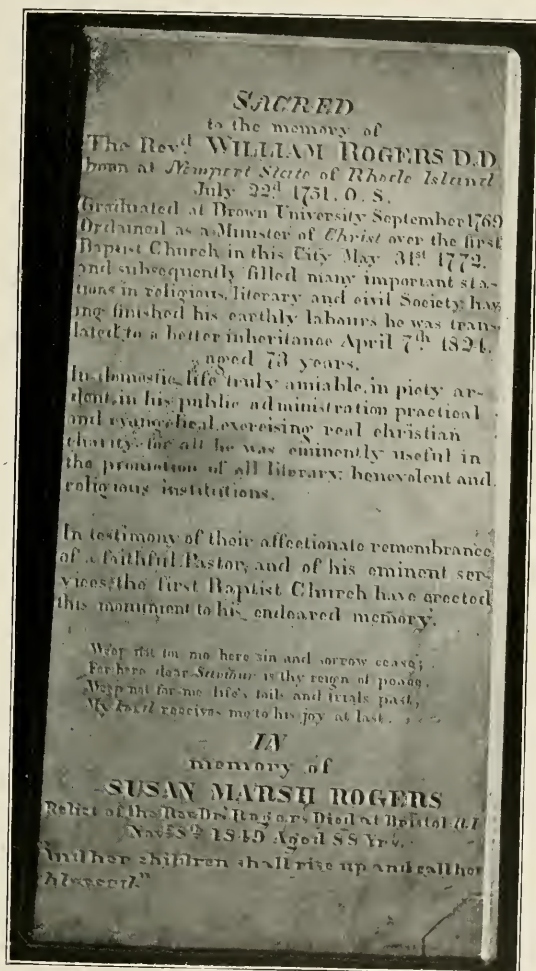 SACRED
to the memory of
The Revd. WILLIAM ROGERS D.D.
born at Newport State of Rhode Island
July 22d. 1751. O. S.
Graduated at Brown University September 1769
Ordained as a Minister of Christ over the first
Baptist Church in this City May 31st. 1772.
and subsequently filled many important sta-
tions in religious, literary and civil Society; hav-
ing finished his earthly labours he was trans-
lated to a better inheritance April 7th 1824.
aged 73 years.
In domestic life truly amiable, in piety ar-
dent, in his public administration practical
and evangelical, exercising real christian
charity for all he was eminently useful in
the promotion of all literary; benevolent and
religious institutions.
In testimony of their affectionate remembrance
of a faithful Pastor, and of his eminent ser-
vices, the first Baptist Church have erected
this monument to his endeared memory.
Weep not for me here sin and sorrow cease;
For here dear Saviour is thy reign of peace.
Weep not for me life's toils and trials past,
My receives me to his joy at last.
IN
memory of
SUSAN MARSH ROGERS
Relict of the Rev Dr. Rogers Died at Bristol R.I.
Novr 8th 1849 Aged 88 Yrs.
"And her children shall rise up and call her
blessed."